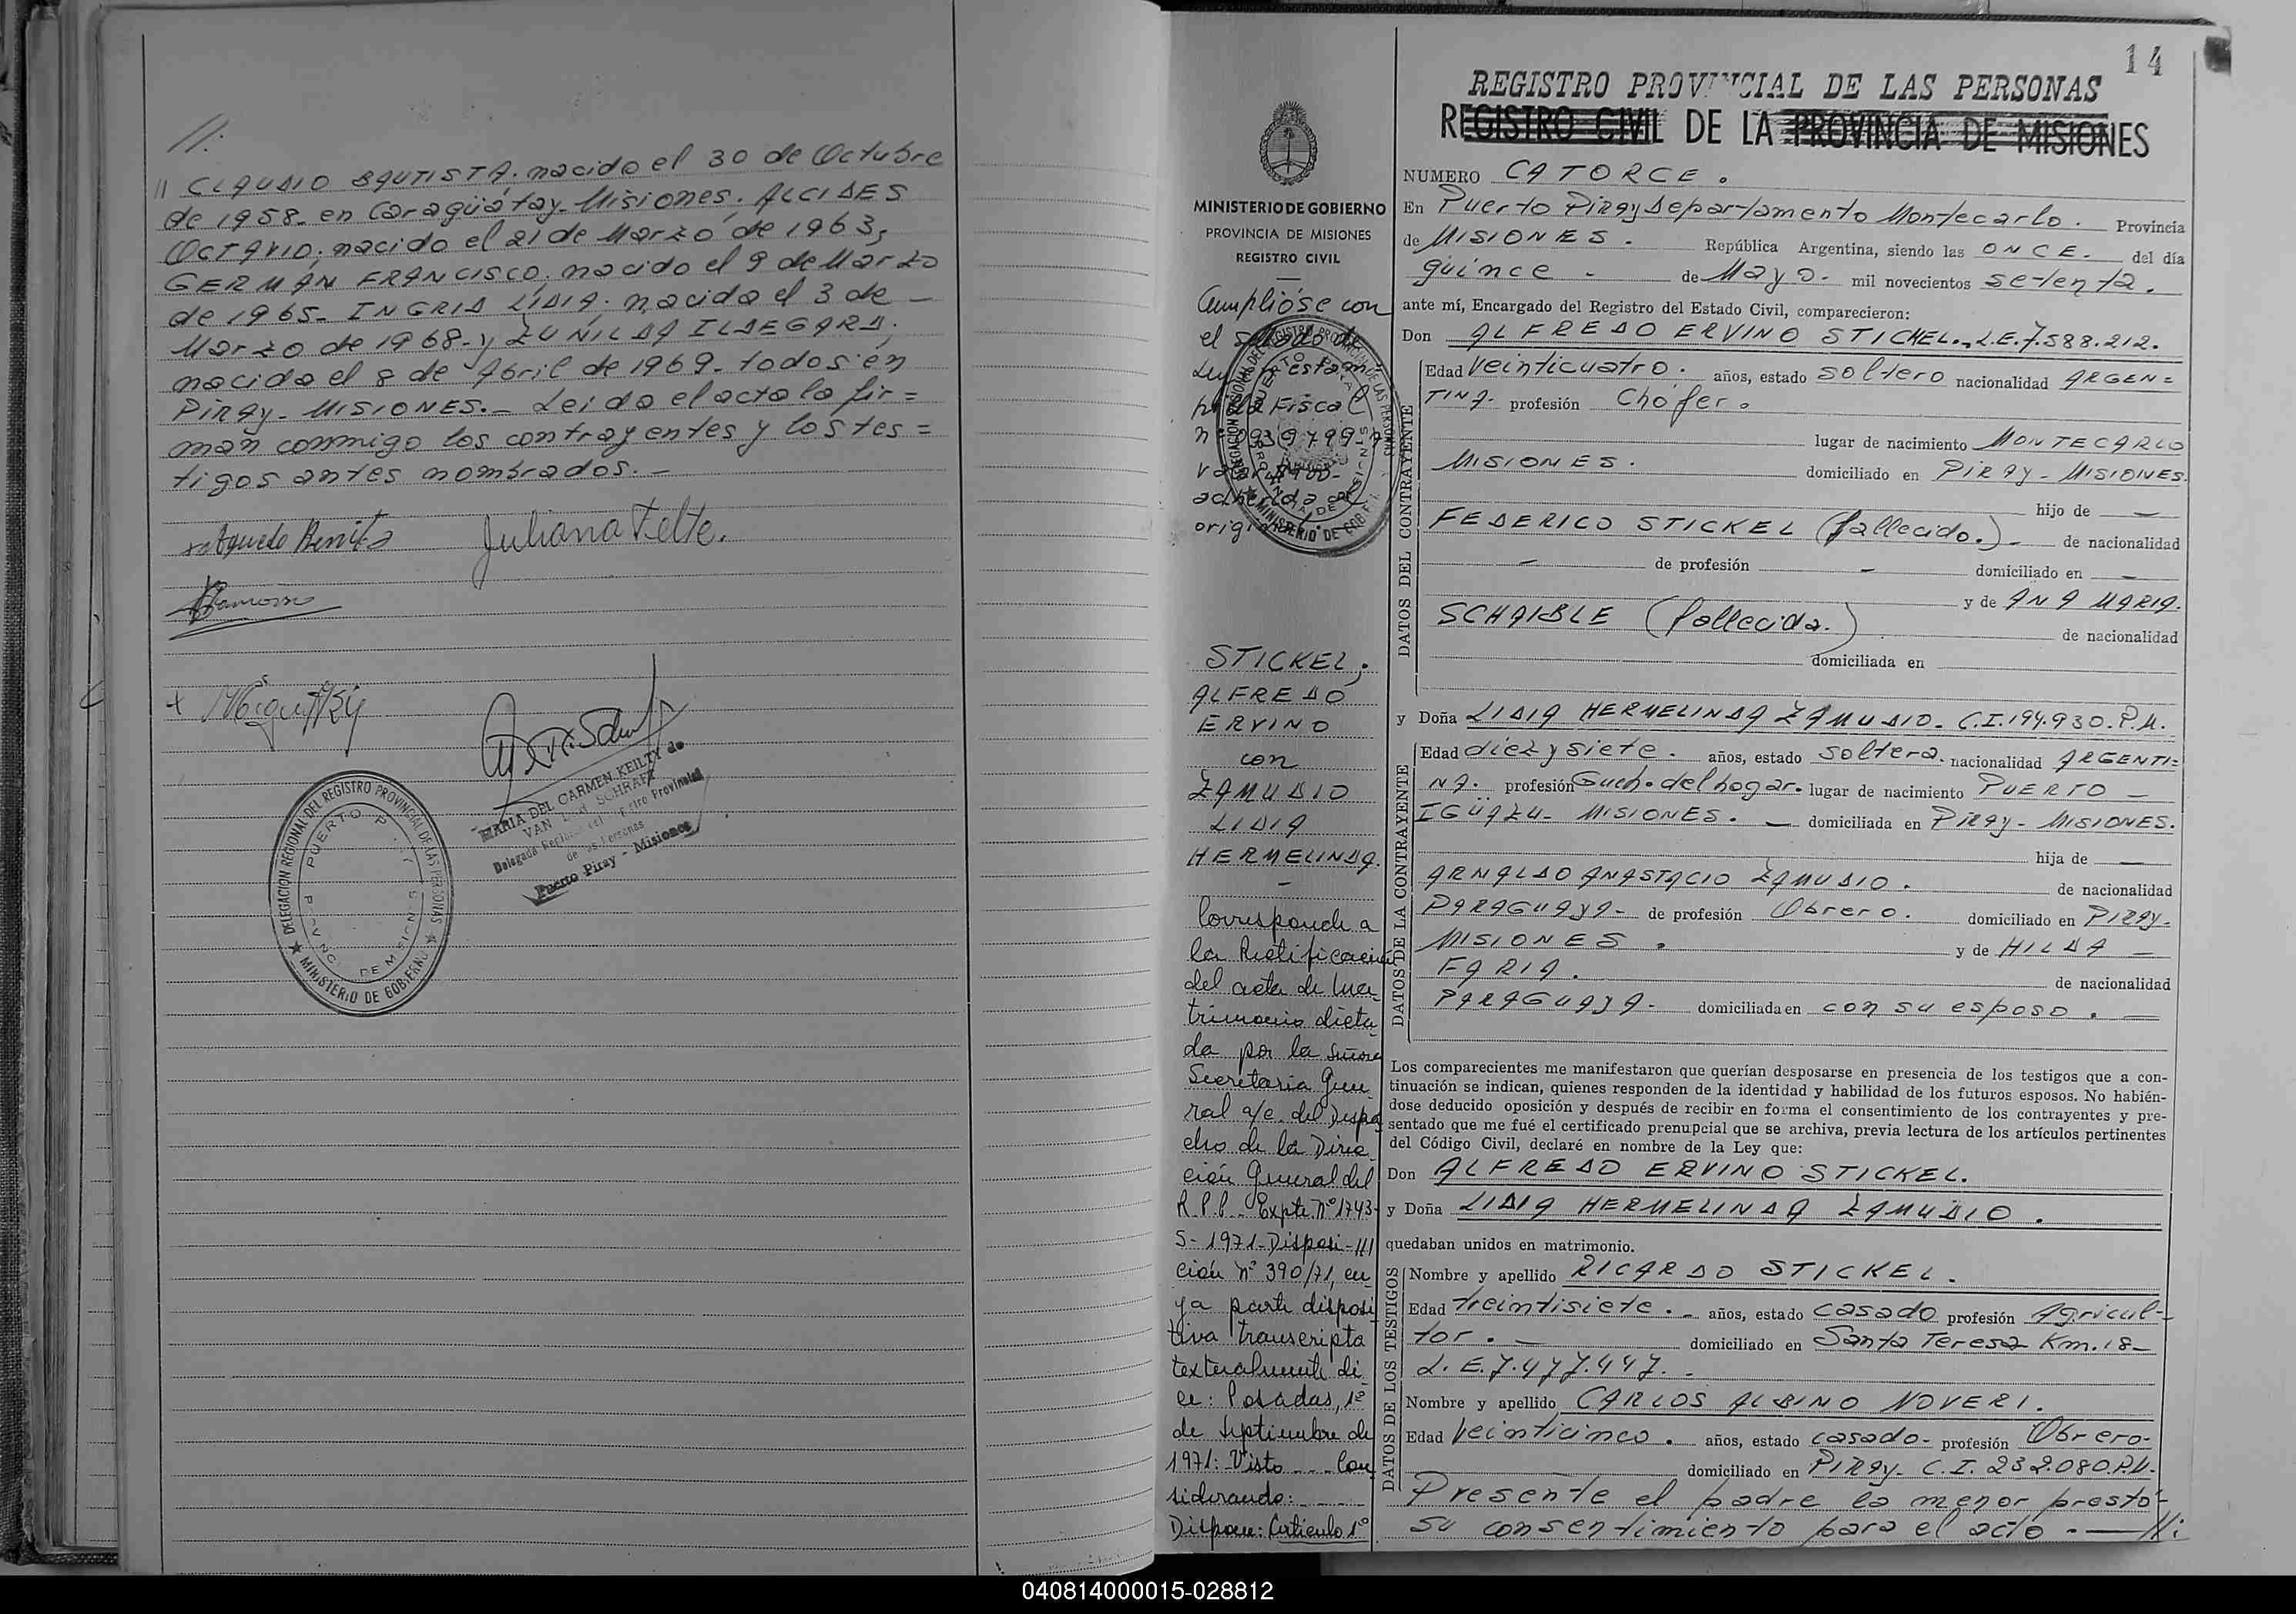 //.
// CLAUDIO BAUTISTA. nacido el 30 de Octubre
de 1958. en Caragüatay- Misiones. ALCIDES
OCTAVIO; nacido el 21 de Marzo de 1963,
GERMAN FRANCISCO. nacido el 9 de Marzo
de 1965- INGRID LIDIA. nacida el 3 de -
Marzo de 1968- y ZUNILDA ILDEGARD,
nacida el 8 de Abril de 1969. todos en
PIRAY- MISIONES.- Leido el acta la fir=
man conmigo los contrayentes y los tes=
tigos antes nombrados. -
Juliana Felte.
MARIA DEL CARMEN KEILTY de
VAN SCHRAFT
Puerto Piray - Misiones
DELEGACION REGIONAL DEL REGISTRO PROVINCIAL DE LAS PERSONAS
MINISTERIO DE GOBIERNO
14
REGISTRO PROVINCIAL DE LAS PERSONAS
REGISTRO CIVIL DE LA PROVINCIA DE MISIONES
MINISTERIO DE GOBIERNO
PROVINCIA DE MISIONES
REGISTRO CIVIL
Cumplióse con
el sellado de
Ley
n° 0939799-
adherida al
original.
STICKEL,
ALFREDO
ERVINO
con
ZAMUDIO
LIDIA
HERMELINDA.
-
Corresponde a
la Rectificación
del acta de ma-
trimonio dicta
da por la señora
Secretaria Gene
ral a/c. del Despa
cho de la Direc
ción General del
R.P.P.- Expte. N° 1743-
S- 1971- Disposi-///
ción N° 390/71, cu
ya parte disposi
tiva transcripta
textualmente di
ce: Posadas, 1°
de Septiembre de
1971: Visto.... Con
siderando:.......
Dispone: Artículo 1°
NUMERO CATORCE.
En Puerto Piray Departamento Montecarlo. Provincia
de MISIONES. República Argentina, siendo las ONCE. del día
quince - de Mayo- mil novecientos setenta.
ante mí, Encargado del Registro del Estado Civil, comparecieron:
DATOS DEL CONTRAYENTE
Don ALFREDO ERVINO STICKEL.- L.E.7.588.212.
Edad veinticuatro. años, estado soltero nacionalidad ARGEN=
TINA. profesión Chófer.
lugar de nacimiento MONTECARLO
MISIONES. domiciliado en PIRAY- MISIONES.
hijo de -
FEDERICO STICKEL (fallecido.)- de nacionalidad
- de profesión - domiciliado en -
y de ANA MARIA.
SCHAIBLE (fallecida.) de nacionalidad
domiciliada en
DATOS DE LA CONTRAYENTE
y Doña LIDIA HERMELINDA ZAMUDIO- C.I.194.930.P.M.
Edad diez y siete. años, estado soltera. nacionalidad ARGENTI=
NA. profesión Queh. del hogar. lugar de nacimiento PUERTO -
IGÜAZU- MISIONES. - domiciliada en Piray- MISIONES.
hija de -
ARNALDO ANASTACIO ZAMUDIO. de nacionalidad
PARAGUAYA- de profesión Obrero. domiciliado en PIRAY-
MISIONES. y de HILDA -
FARIA. de nacionalidad
PARAGUAYA. domiciliada en con su esposo. -
Los comparecientes me manifestaron que querían desposarse en presencia de los testigos que a con-
tinuación se indican, quienes responden de la identidad y habilidad de los futuros esposos. No habién-
dose deducido oposición y después de recibir en forma el consentimiento de los contrayentes y pre-
sentado que me fué el certificado prenupcial que se archiva, previa lectura de los artículos pertinentes
del Código Civil, declaré en nombre de la Ley que:
Don ALFREDO ERVINO STICKEL.
y Doña LIDIA HERMELINDA ZAMUDIO.
quedaban unidos en matrimonio.
DATOS DE LOS TESTIGOS
Nombre y apellido RICARDO STICKEL.
Edad treintisiete.- años, estado casado profesión Agricul-
tor. - domiciliado en Santa Teresa Km.18-
L.E.7.477.447.
Nombre y apellido CARLOS ALBINO NOVERI.
Edad Veinticinco. años, estado casado- profesión Obrero-
domiciliado en PIRAY- C.I. 232.080.P.M.
Presente el padre la menor prestó-
su consentimiento para el acto.- //:
040814000015-028812